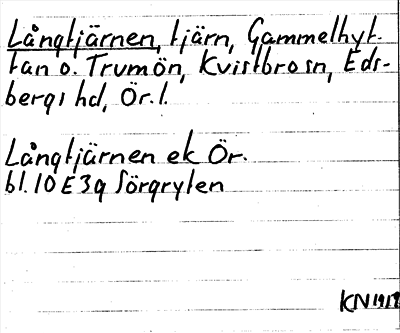 Långtjärnen, tjärn, Gammelhyt-
tan o. Trumön, Kvistbro sn, Eds-
bergs hd, Ör. l.
Långtjärnen ek Ör.
bl. 10 E 3g Sörgryten